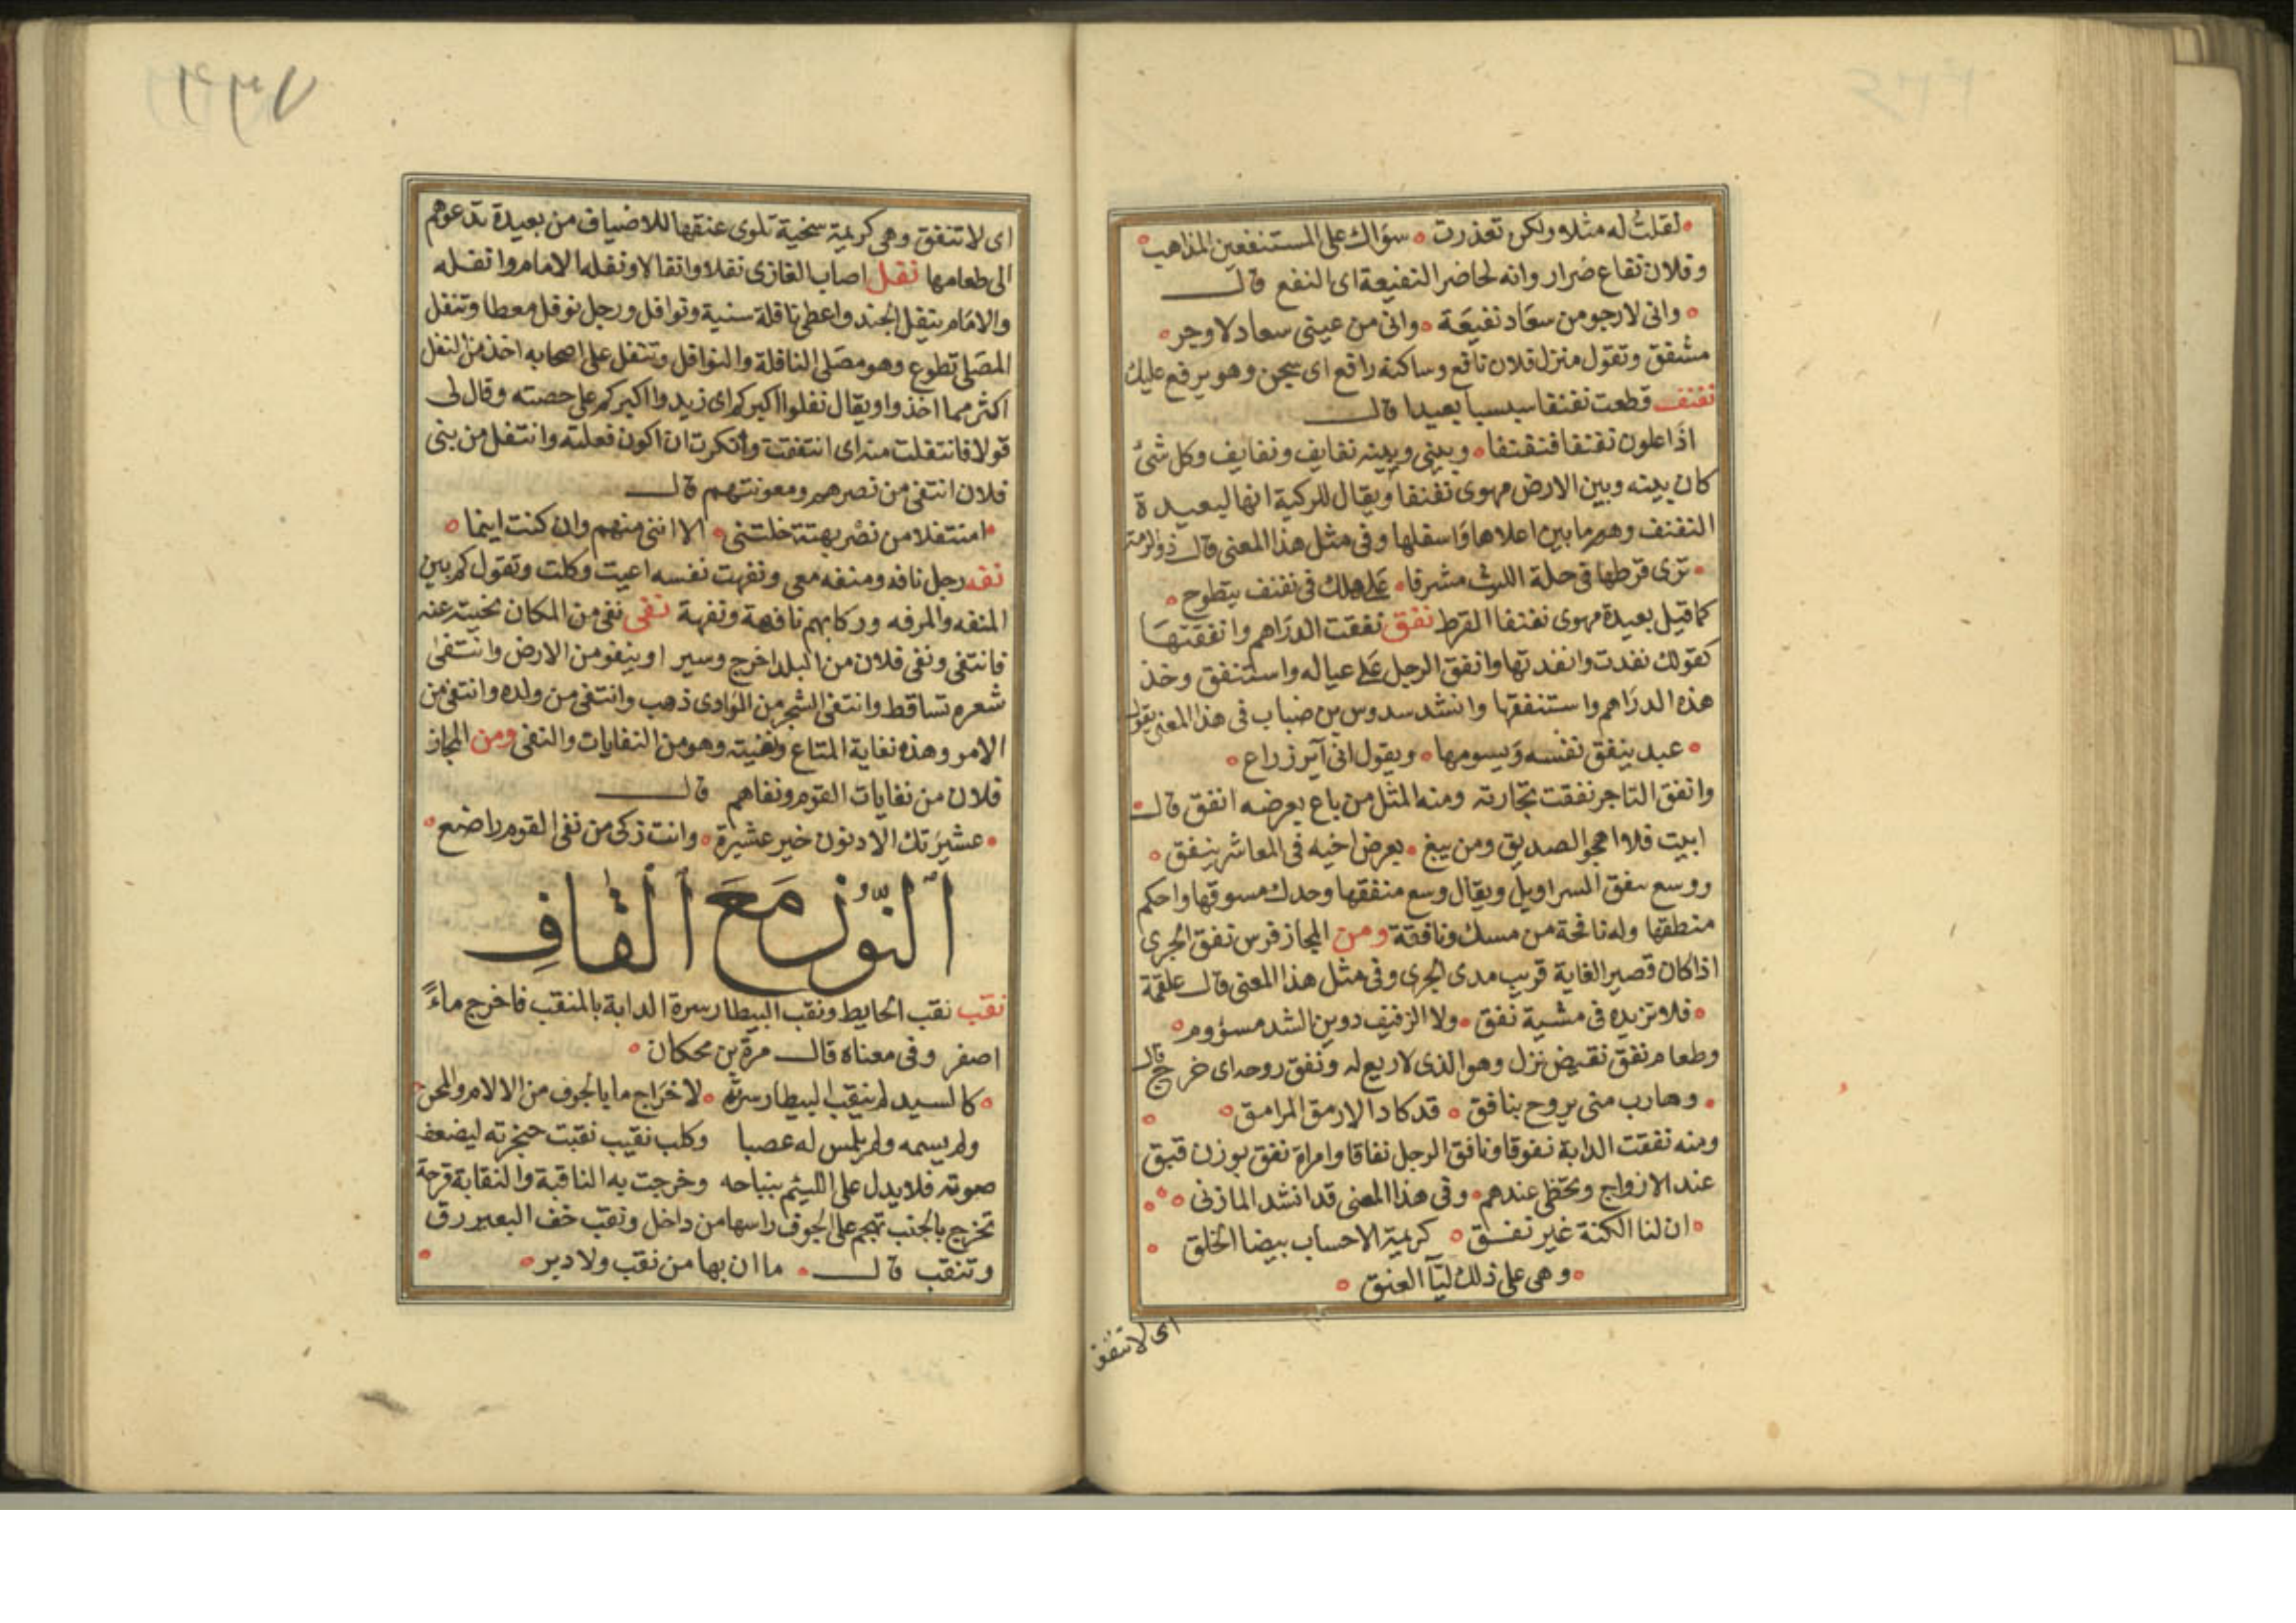 لقلت له مثلا ولكن تعذرت سؤالك على المستنفعين المذاهب
وفلان نفاع ضرار وانه لحاضر النفيعة اى النفع قال
وانى لارجو من سعاد نفيعة وانى من عينى سعاد لاوجر
مشفق وتقول منزل فلان نافع وساكنه رافع اى سجن وهو يرفع عليك
نفنف قطعت نفنفا سبسبا بعيدا قال
اذا علون نفنفا فنفنفا وبينى وبينه نفايف ونفايف وكل شئ
كان بينه وبين الارض مهوى نفنفا ويقال للركية انها لبعيدة
النفنف وهو ما بين اعلاها واسفلها وفى مثل هذا المعنى قال ذو الرمة
ترى قرطها فى حلة الليث مشرفا على هلك فى نفنف يتطوح
كما قيل بعيدة مهوى نفنفا القرط نفق نفقت الدراهم وانفقتها
كقولك نفدت وانفدتها وانفق الرجل على عياله واستنفق وخذ
هذه الدراهم واستنفقها وانشد سدوس بن ضباب فى هذا المعنى يقول
عبد ينفق نفسه ويسومها ويقول انى آبر زراع
وانفق التاجر نفقت تجارته ومنه المثل من باع بعرضه انفق قال
ابيت فلا اهجو الصديق ومن يبغ بعرض اخيه فى المعاشر ينفق
ووسع سفق السراويل ويقال وسع منفقها وحدك مسوقها واحكم
منطقها وله نافجة من مسك ونافقة ومن المجاز فرس نفق الجرى
اذا كان قصير الغاية قريب مدى الجرى وفى مثل هذا المعنى قال علقمة
فلا تزيده فى مشية نفق ولا الزفيف دوين الشد مسؤوم
وطعام نفق نقيض نزل وهو الذى لا ريع له ونفق روحه اى خرج قال
وهارب منى يروح بنافق قد كاد الا رمق المرامق
ومنه نفقت الدابة نفوقا ونافق الرجل نفاقا وامراة نفق بوزن قبق
عند الازواج وتحظى عندهم وفى هذا المعنى قد انشد المازنى
ان لنا الكنة غير نفق كريمة الاحساب بيضا الخلق
وهى على ذلك ليآ العنق
اى لا تنفق
اى لا تنفق وهى كريمة سخية تلوى عنقها للاضياف من بعيدة تدعوهم
الى طعامها نفل اصاب الغازى نفلا وانفالا ونفله الامام وانفله
والامام ينفل الجند واعطى نافلة سنية ونوافل ورجل نوفل معطا وتنفل
المصلى تطوع وهو مصلى النافلة والنوافل وتنفل على اصحابه اخذ من النفل
اكثر مما اخذوا ويقال نفلوا اكبركم اى زيدوا اكبركم على حصته وقال لى
قولا فانتفلت منه اى انتفقت وانكرت ان اكون فعلته وانتفل من بنى
فلان انتفى من نصرهم ومعونتهم قال
امنتفلا من نصر بهتة خلتنى الا اننى منهم وان كنت اينما
نفه رجل نافه ومنفه معى ونفهت نفسه اعيت وكلت وتقول كم بين
المنفه والمرفه وركابهم نافهة ونفهة نفى نفى من المكان نحيته عنه
فانتفى ونفى فلان من البلد اخرج وسير او ينفو من الارض وانتفى
شعره تساقط وانتفى الشجر من الوادى ذهب وانتفى من ولده وانتفى من
الامر وهذه نفاية المتاع ونفيته وهو من النفايات والنفى ومن المجاز
فلان من نفايات القوم ونفاهم قال
عشيرتك الادنون خير عشيرة وانت زكى من نفى القوم راضع
النون مع القاف
نقب نقب الحايط ونقب البيطار سرة الدابة بالمنقب فاخرج ماء
اصفر وفى معناه قال مرة بن محكان
كالسيد لم ينقب البيطار سرته لاخراج ما بالجوف من الالام والمحن
ولم يسمه ولم يلمس له عصبا وكلب نقيب نقبت حنجرته ليضعف
صوته فلا يدل على اللئيم بنباحه وخرجت به الناقبة والنقابة قرحة
تخرج بالجنب تهجم على الجوف راسها من داخل ونقب خف البعير رق
وتنقب قال ما ان بها من نقب ولا دبر